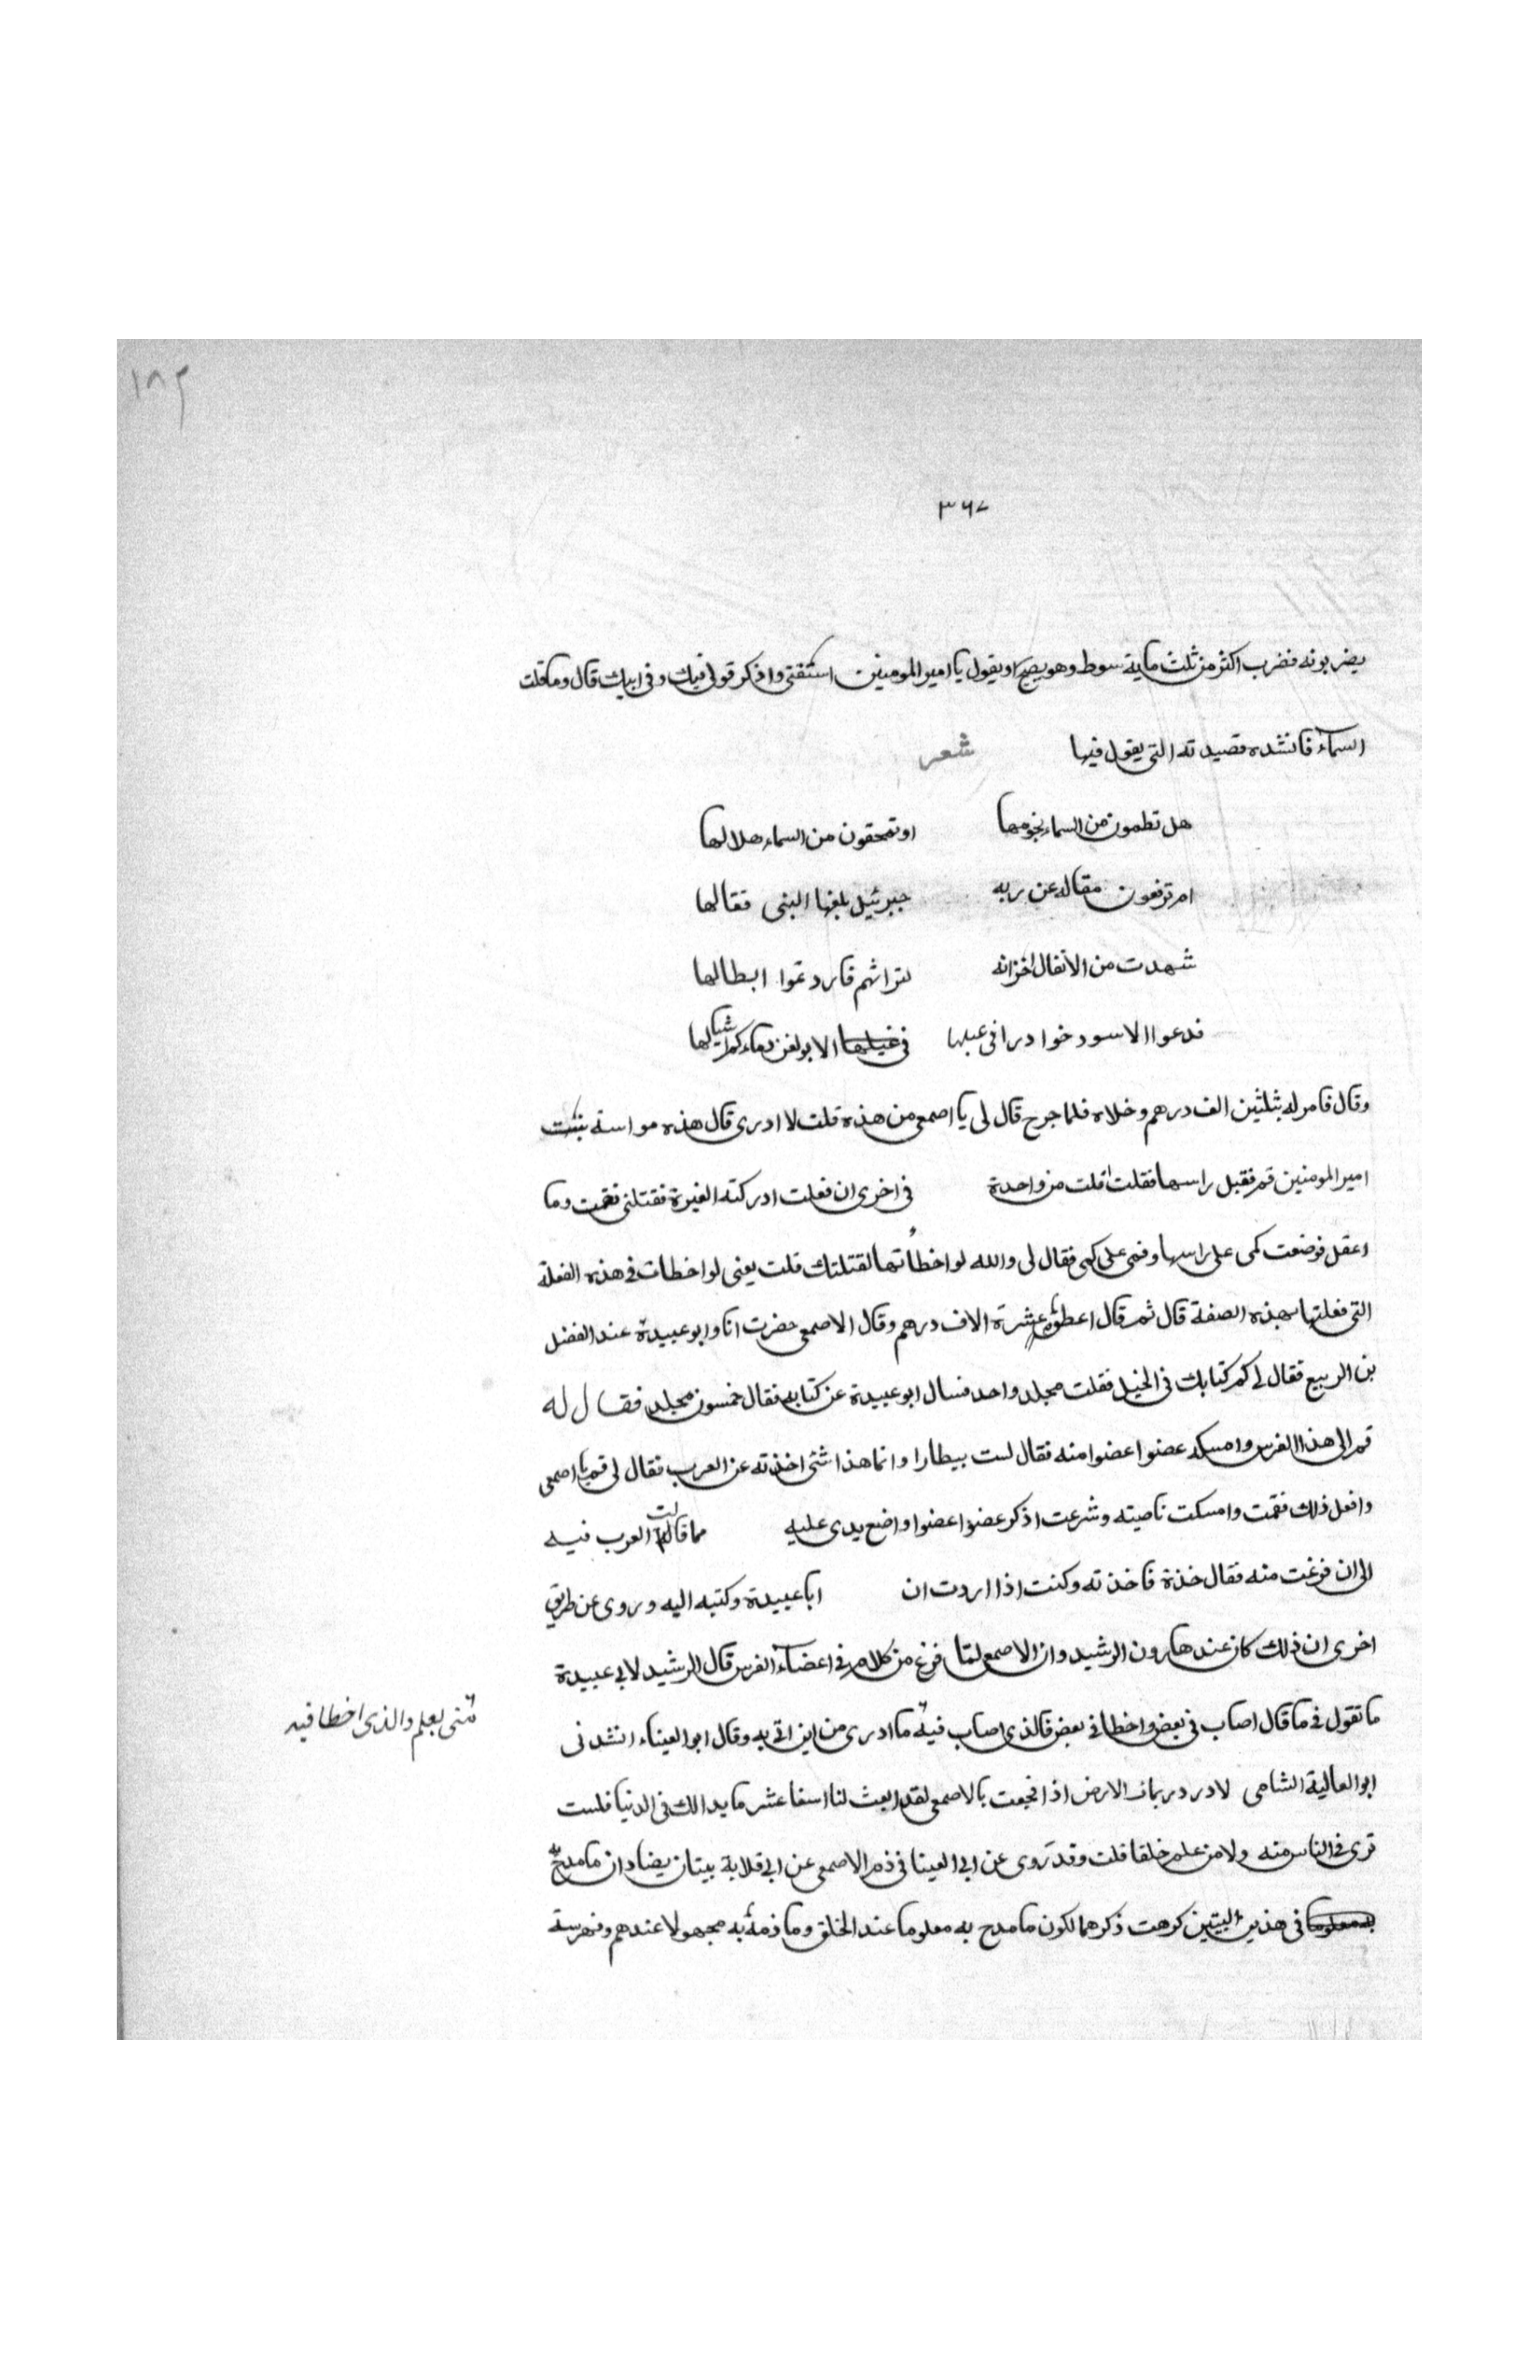 ١٨٢
٣٦٧
يضربونه فضرب اكثر من ثلث ماية سوط وهو يصيح ويقول يا امير المومنين استبقني واذكر قولي فيك وفي ابيك قال وما قلت
السماء فانشده قصيدته التي يقول فيها شعر
هل تطمون من السماء نجومها او تمحقون من السماء هلالها
ام ترفعون مقاله عن ربه جبرئيل بلغها النبى فقالها
شهدت من الانفال اخزانه لتراثهم فاردتموا ابطالها
فدعوا الاسود خوادرا فى عبلها الا يولغن دماءكم اشبالها
وقال فامر له بثلثين الف درهم وخلاه فلما جرح قال لى يا اصمعى من هذه قلت لا ادرى قال هذه مواسة بنت
امير المومنين قم فقبل راسها فقلت افلت من واحدة فى اخرى ان فعلت ادركته الغيرة فقتلنى فقمت وما
اعقل فوضعت كمى على راسها وفمى على كمى فقال لى والله لو اخطأتها لقتلتك قلت يعنى لو اخطات فى هذه الفعلة
التى فعلتها بهذه الصفة قال ثم قال اعطوه عشرة الاف درهم وقال الاصمعى حضرت انا وابو عبيدة عند الفضل
بن الربيع فقال لى كم كتابك فى الخيل فقلت مجلد واحد فسال ابو عبيدة عن كتابه فقال خمسون مجلد فقال له
قم الى هذا الفرس وامسك عضوا عضوا منه فقال لست بيطارا وانما هذا شئى اخذته عن العرب فقال لى قم يا اصمعى
وافعل ذلك فقمت وامسكت ناصيته وشرعت اذكر عضوا عضوا واضع يدى عليه مما قالت العرب فيه
الى ان فرغت منه فقال خذة فاخذته وكنت اذا اردت ان ابا عبيدة وكتبه اليه وروى عن طريق
اخرى ان ذلك كان عند هارون الرشيد وان الاصمعى لما فرغ من كلامه فى اعضاء الفرس قال الرشيد لابى عبيدة
ما تقول فى ما قال اصاب فى بعض واخطا فى بعض فالذى اصاب فيه ما ادرى من اين اتى به وقال ابو العيناء انشدنى
بعلم والذى اخطا فيه
ابو العالية الشامى لا در در بنات الارض اذا فجعت بالاصمعى لقد ابعث لنا اسفا عش ما بدا لك فى الدنيا فلست
ترى فى الناس منه ولا من علمه خلفا قلت وقد روى عن ابى العينا فى ذم الاصمعى عن ابى قلابة بيتان يضادان ما مدح به
فى هذين البيتين كرهت ذكرهما لكون ما مدح به معلوما عند الخلق وما ذمه به مجهولا عندهم وفهرسة